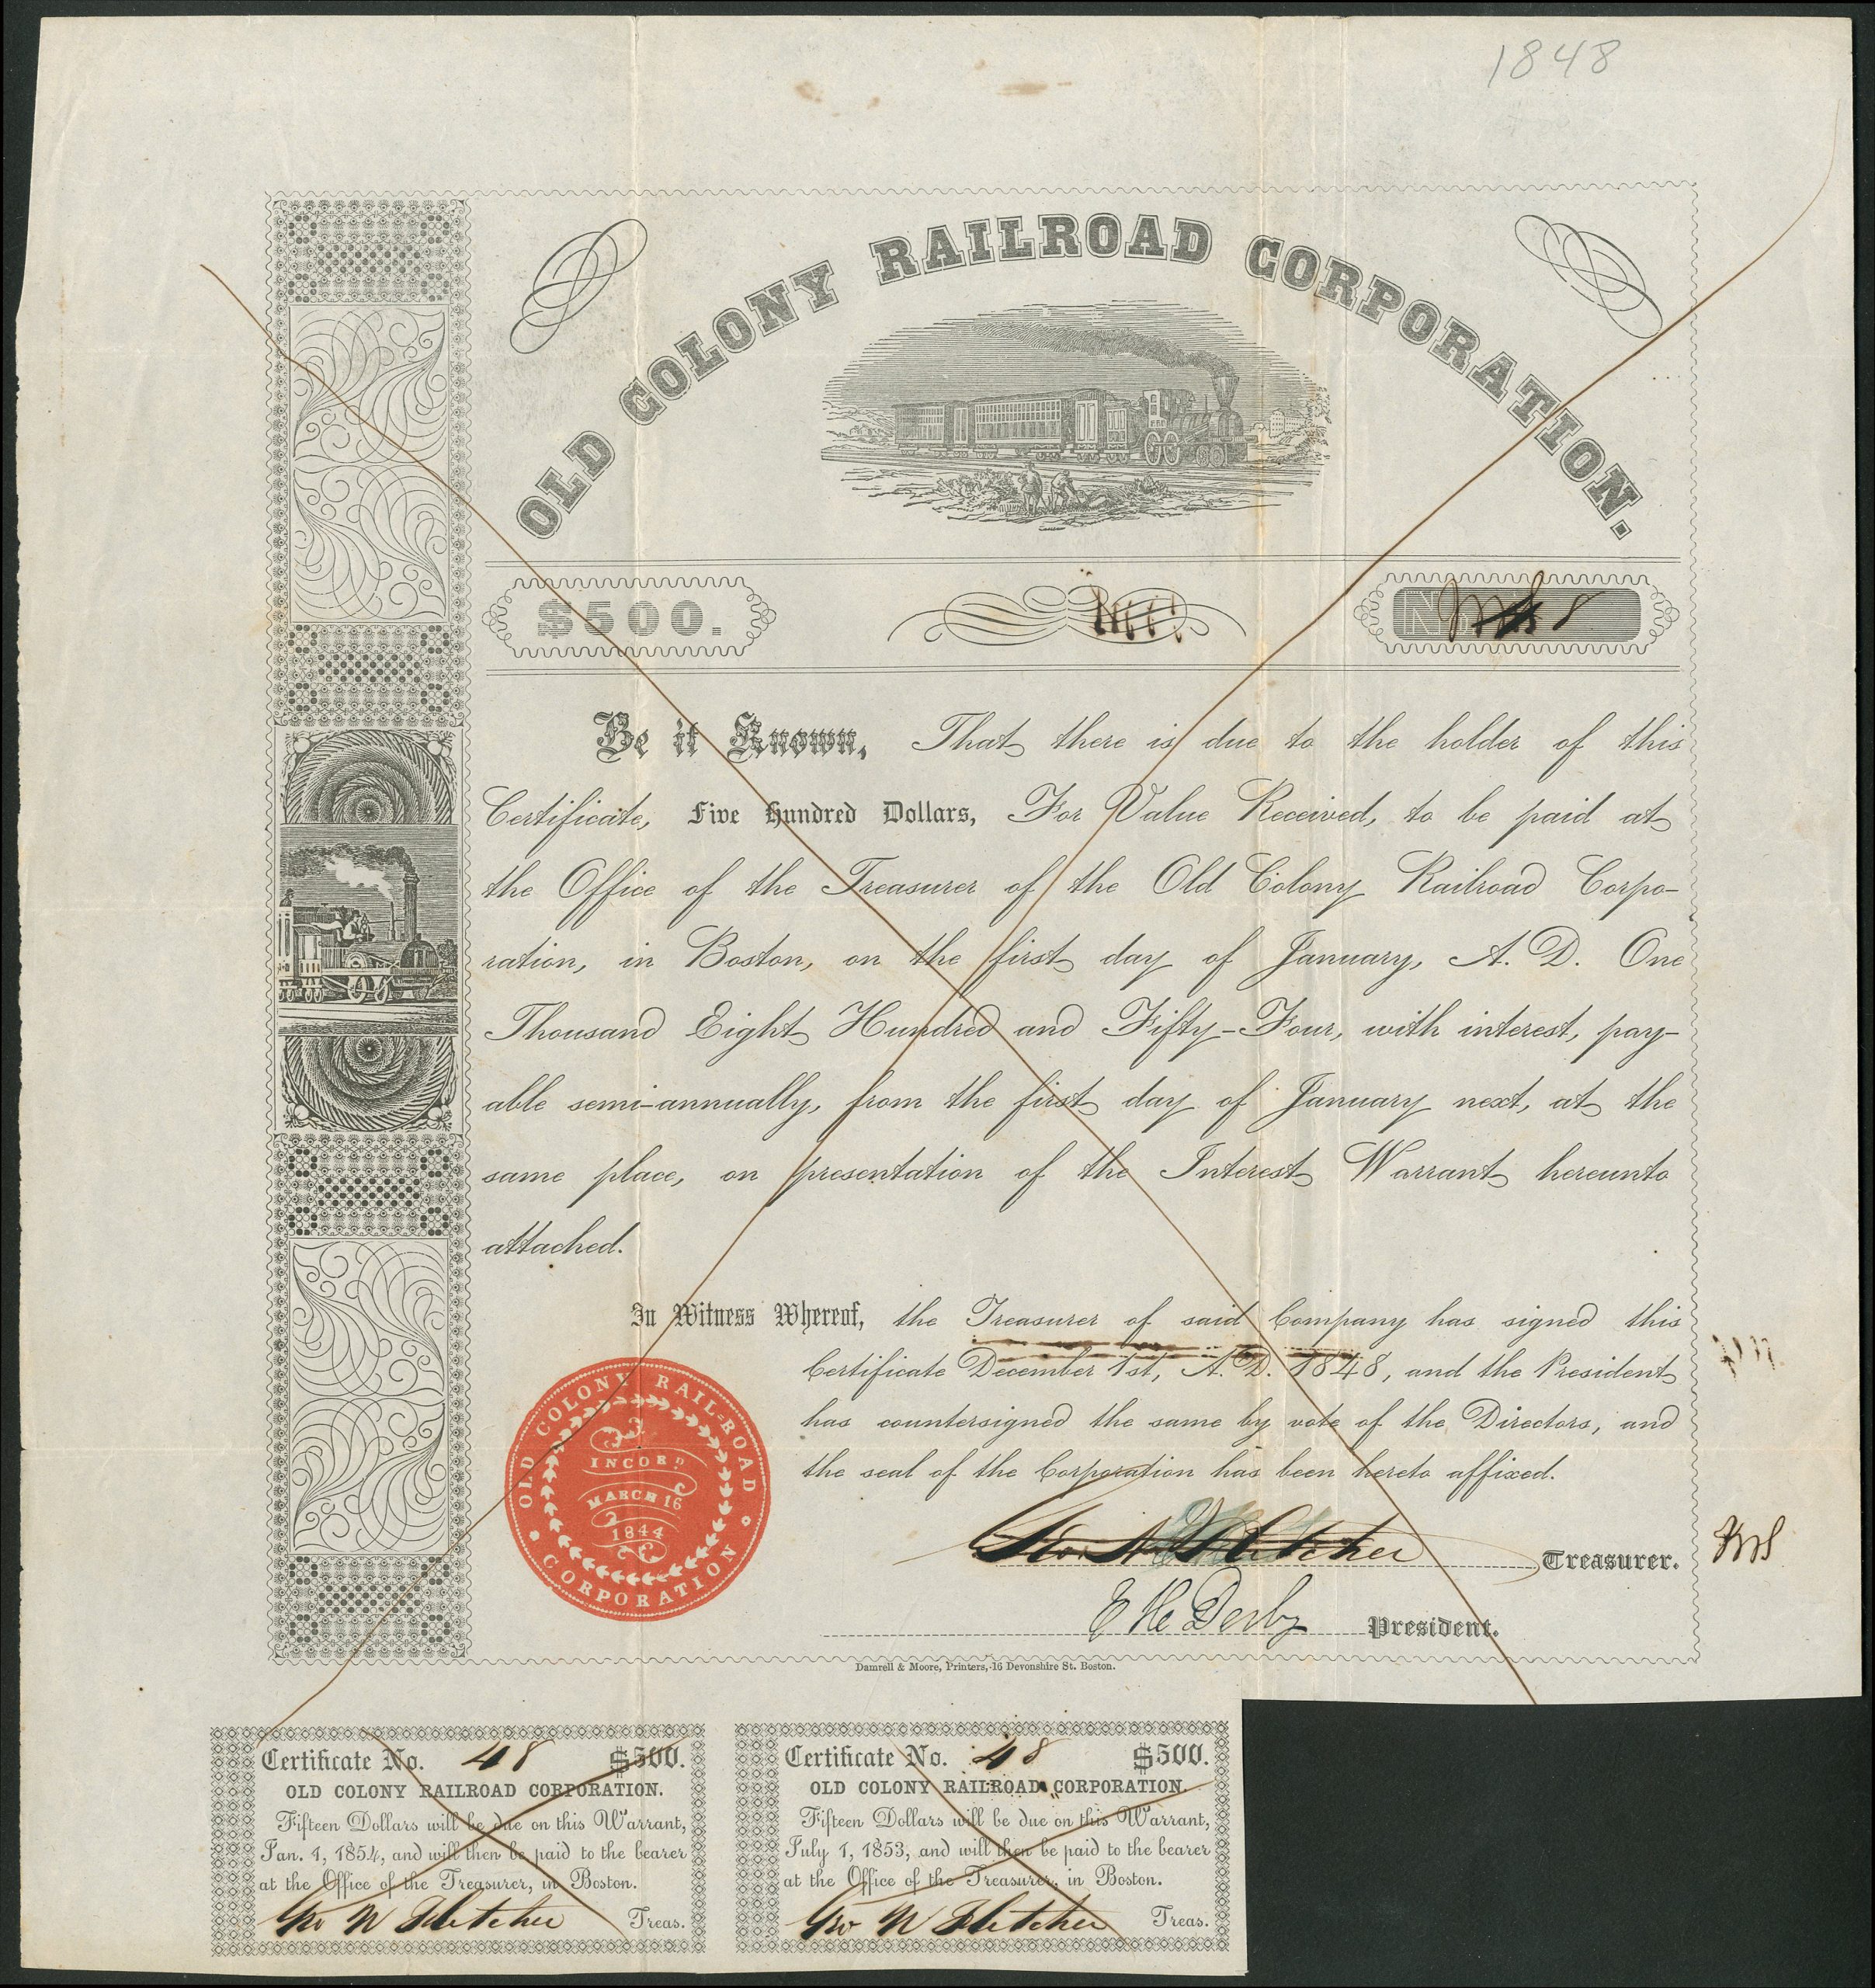 1848
OLD COLONY RAILROAD CORPORATION.
$500.
Be it Known, That there is due to the holder of this
Certificate, Five Hundred Dollars, For Value Received, to be paid at
the Office of the Treasurer of the Old Colony Railroad Corpo-
ration, in Boston, on the first day of January, A. D. One
Thousand Eight Hundred and Fifty-Four, with interest, pay-
able semi-annually, from the first day of January next, at the
same place, on presentation of the Interest Warrant hereunto
attached.
In Witness Whereof, the Treasurer of said Company has signed this
Certificate December 1st, A. D. 1848, and the President
has countersigned the same by vote of the Directors, and
the seal of the Corporation has been hereto affixed.
OLD COLONY RAIL-ROAD CORPORATION
INCORP.D
MARCH 16
1844
Geo. N Fletcher Treasurer.
E H Derby President.
Damrell & Moore, Printers, 16 Devonshire St. Boston.
Certificate No. 48 $500.
OLD COLONY RAILROAD CORPORATION.
Fifteen Dollars will be due on this Warrant,
Jan. 1, 1854, and will then be paid to the bearer
at the Office of the Treasurer, in Boston.
Geo N Fletcher Treas.
Certificate No. 48 $500.
OLD COLONY RAILROAD CORPORATION.
Fifteen Dollars will be due on this Warrant,
July 1, 1853, and will then be paid to the bearer
at the Office of the Treasurer, in Boston.
Geo N Fletcher Treas.